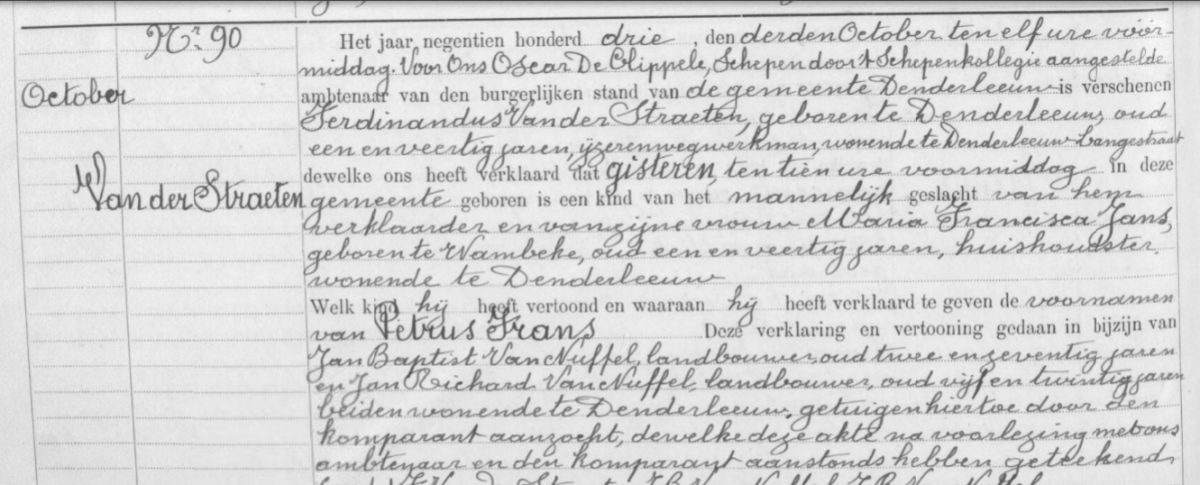 Nr. 90
Het jaar negentien honderd drie, den derden October ten elf ure vóór-
middag. Voor Ons Oscar De Clippele, Schepen door 't Schepenkollegie aangestelde
October
ambtenaar van den burgerlijken stand van de gemeente Denderleeuw is verschenen
Ferdinandus Van der Straeten, geboren te Denderleeuw, oud
een en veertig jaren, ijzerenwegwerkman, wonende te Denderleeuw Langestraat
dewelke ons heeft verklaard dat gisteren, ten tien ure voormiddag in deze
Van der Straeten
gemeente geboren is een kind van het mannelijk geslacht van hem
verklaarder en van zijne vrouw Maria Francisca Jans,
geboren te Wambeke, oud een en veertig jaren, huishoudster
wonende te Denderleeuw
Welk kind hij heeft vertoond en waaraan hij heeft verklaard te geven de voornamen
van Petrus Frans Deze verklaring en vertooning gedaan in bijzijn van
Jan Baptist Van Nuffel, landbouwer, oud twee en zeventig jaren
en Jan Richard Van Nuffel, landbouwer, oud vijf en twintig jaren
beiden wonende te Denderleeuw, getuigen hiertoe door den
komparant aanzocht, dewelke deze akte na voorlezing met ons
ambtenaar en den komparant aanstonds hebben geteekend,